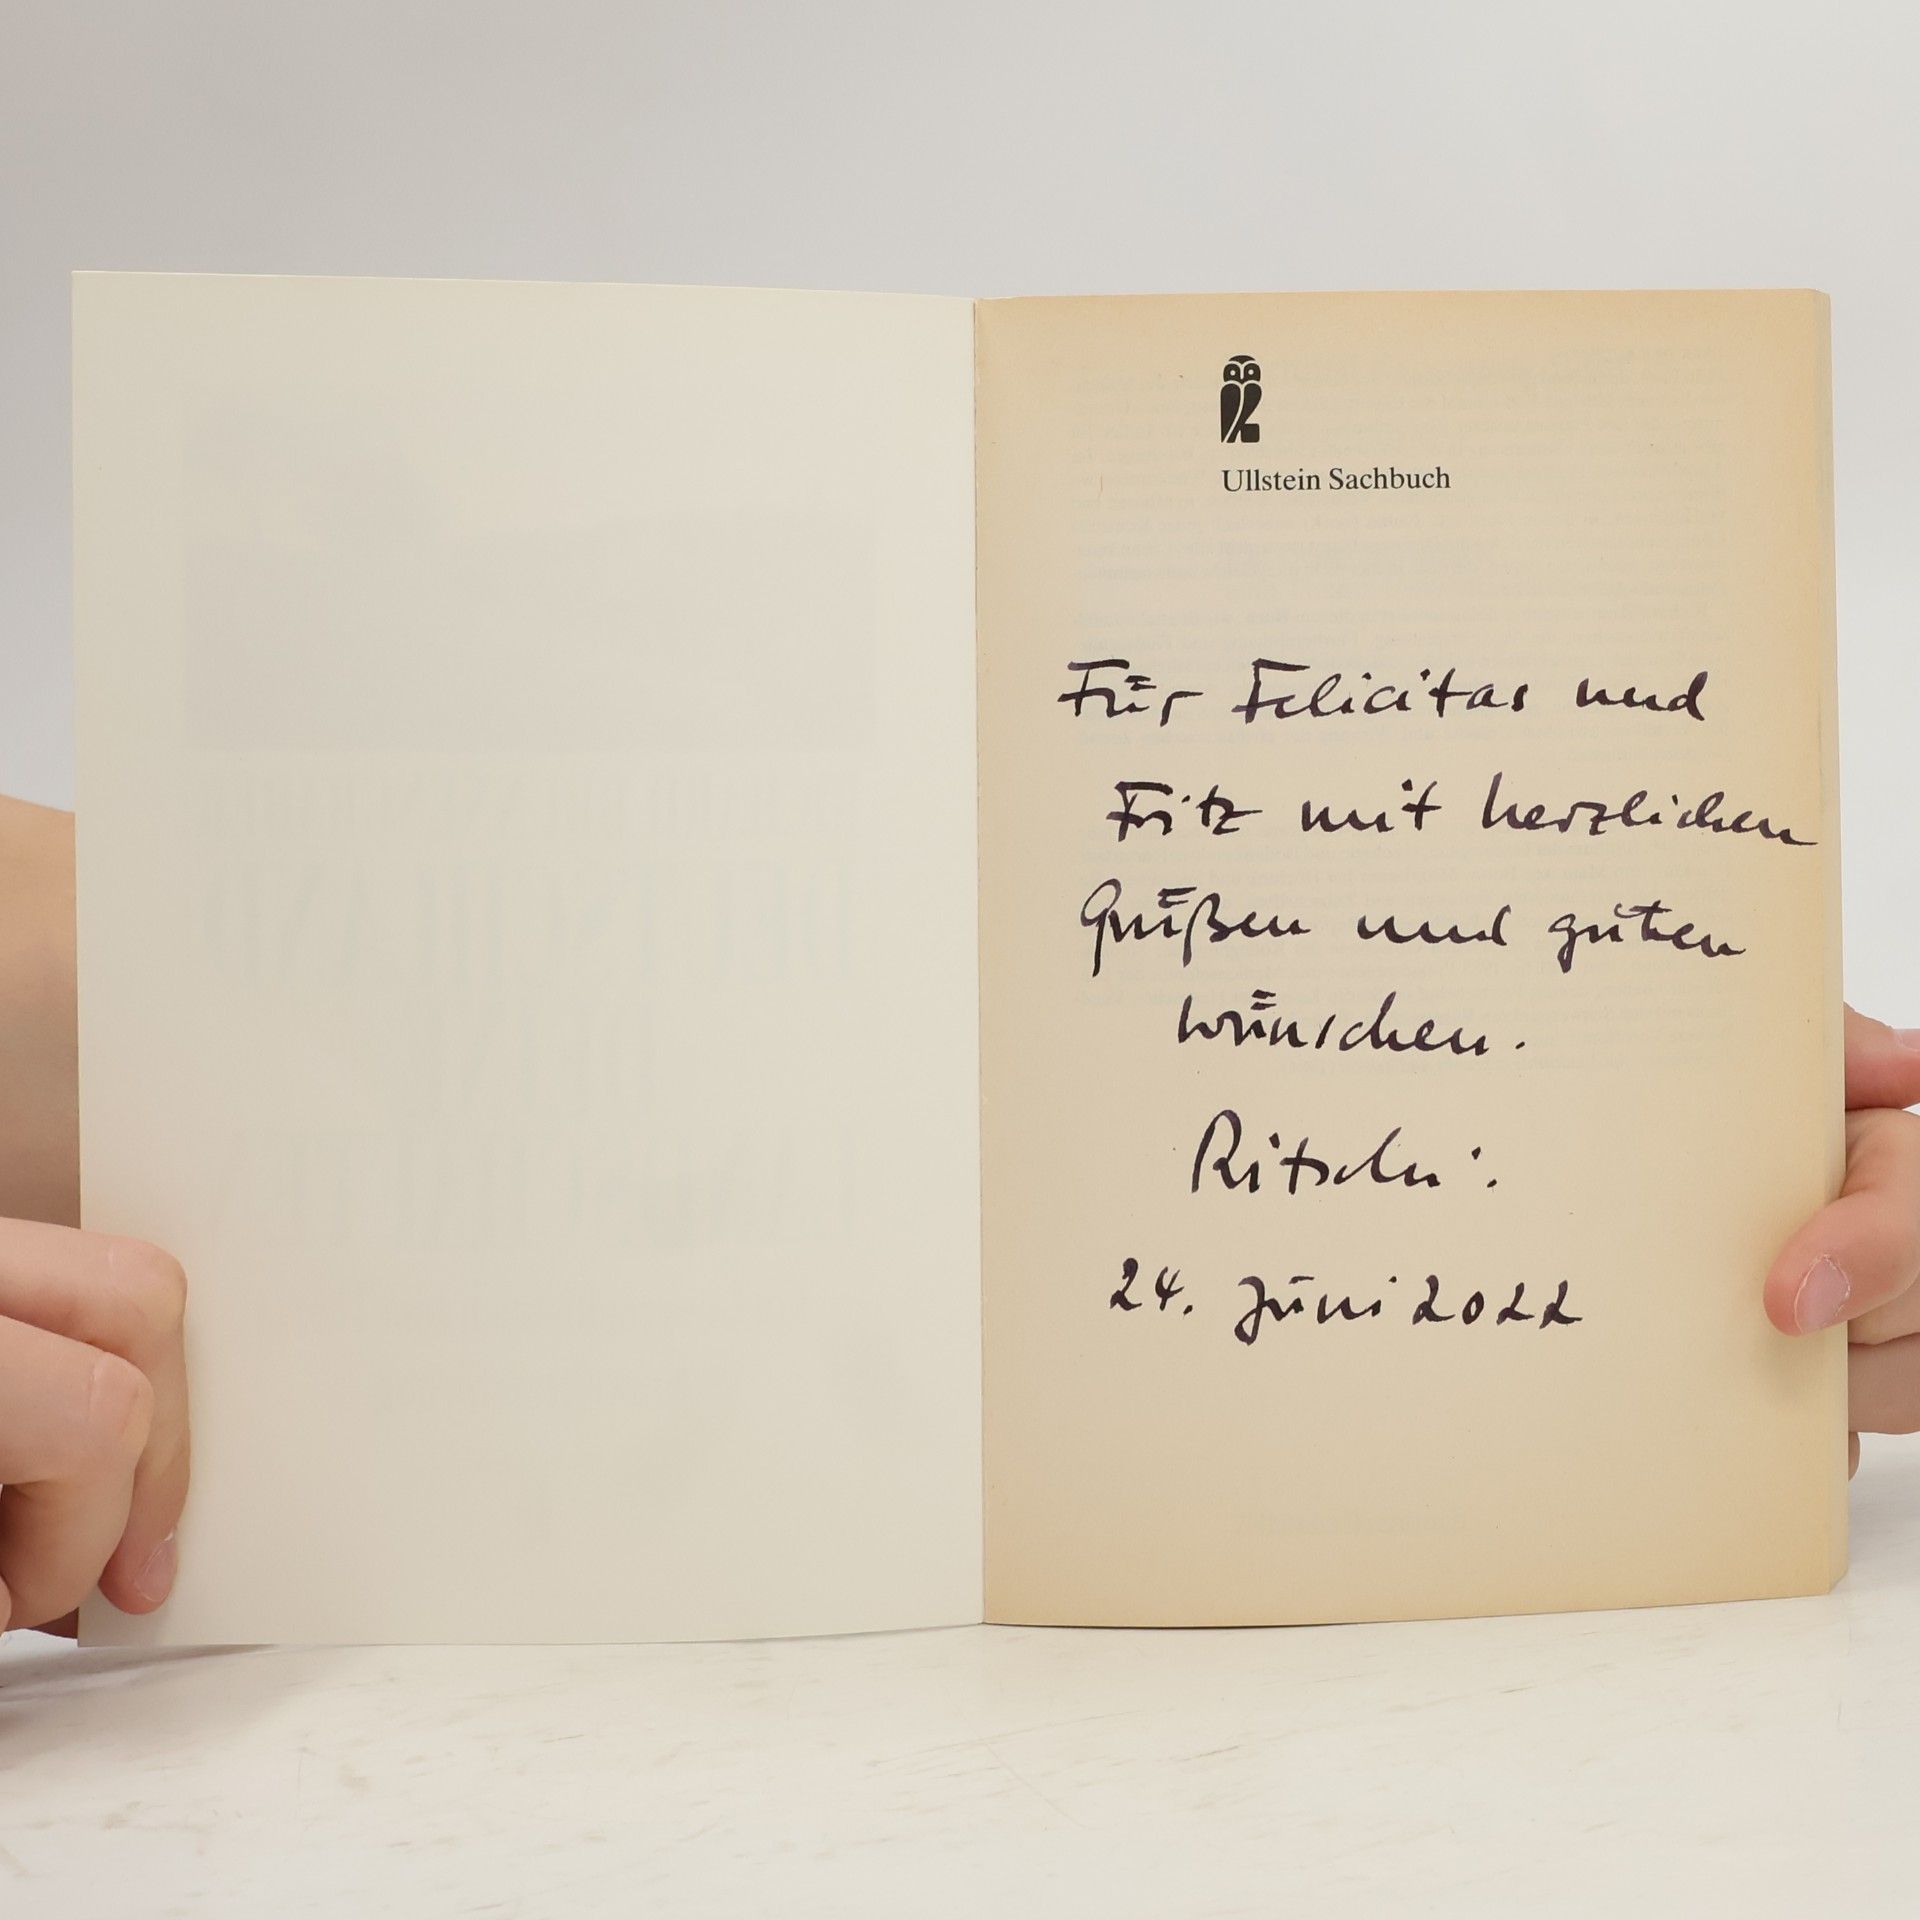 Ullstein Sachbuch
Für Felicitas und
Fritz mit herzlichen
Grüßen und guten
Wünschen.
24. Juni 2022